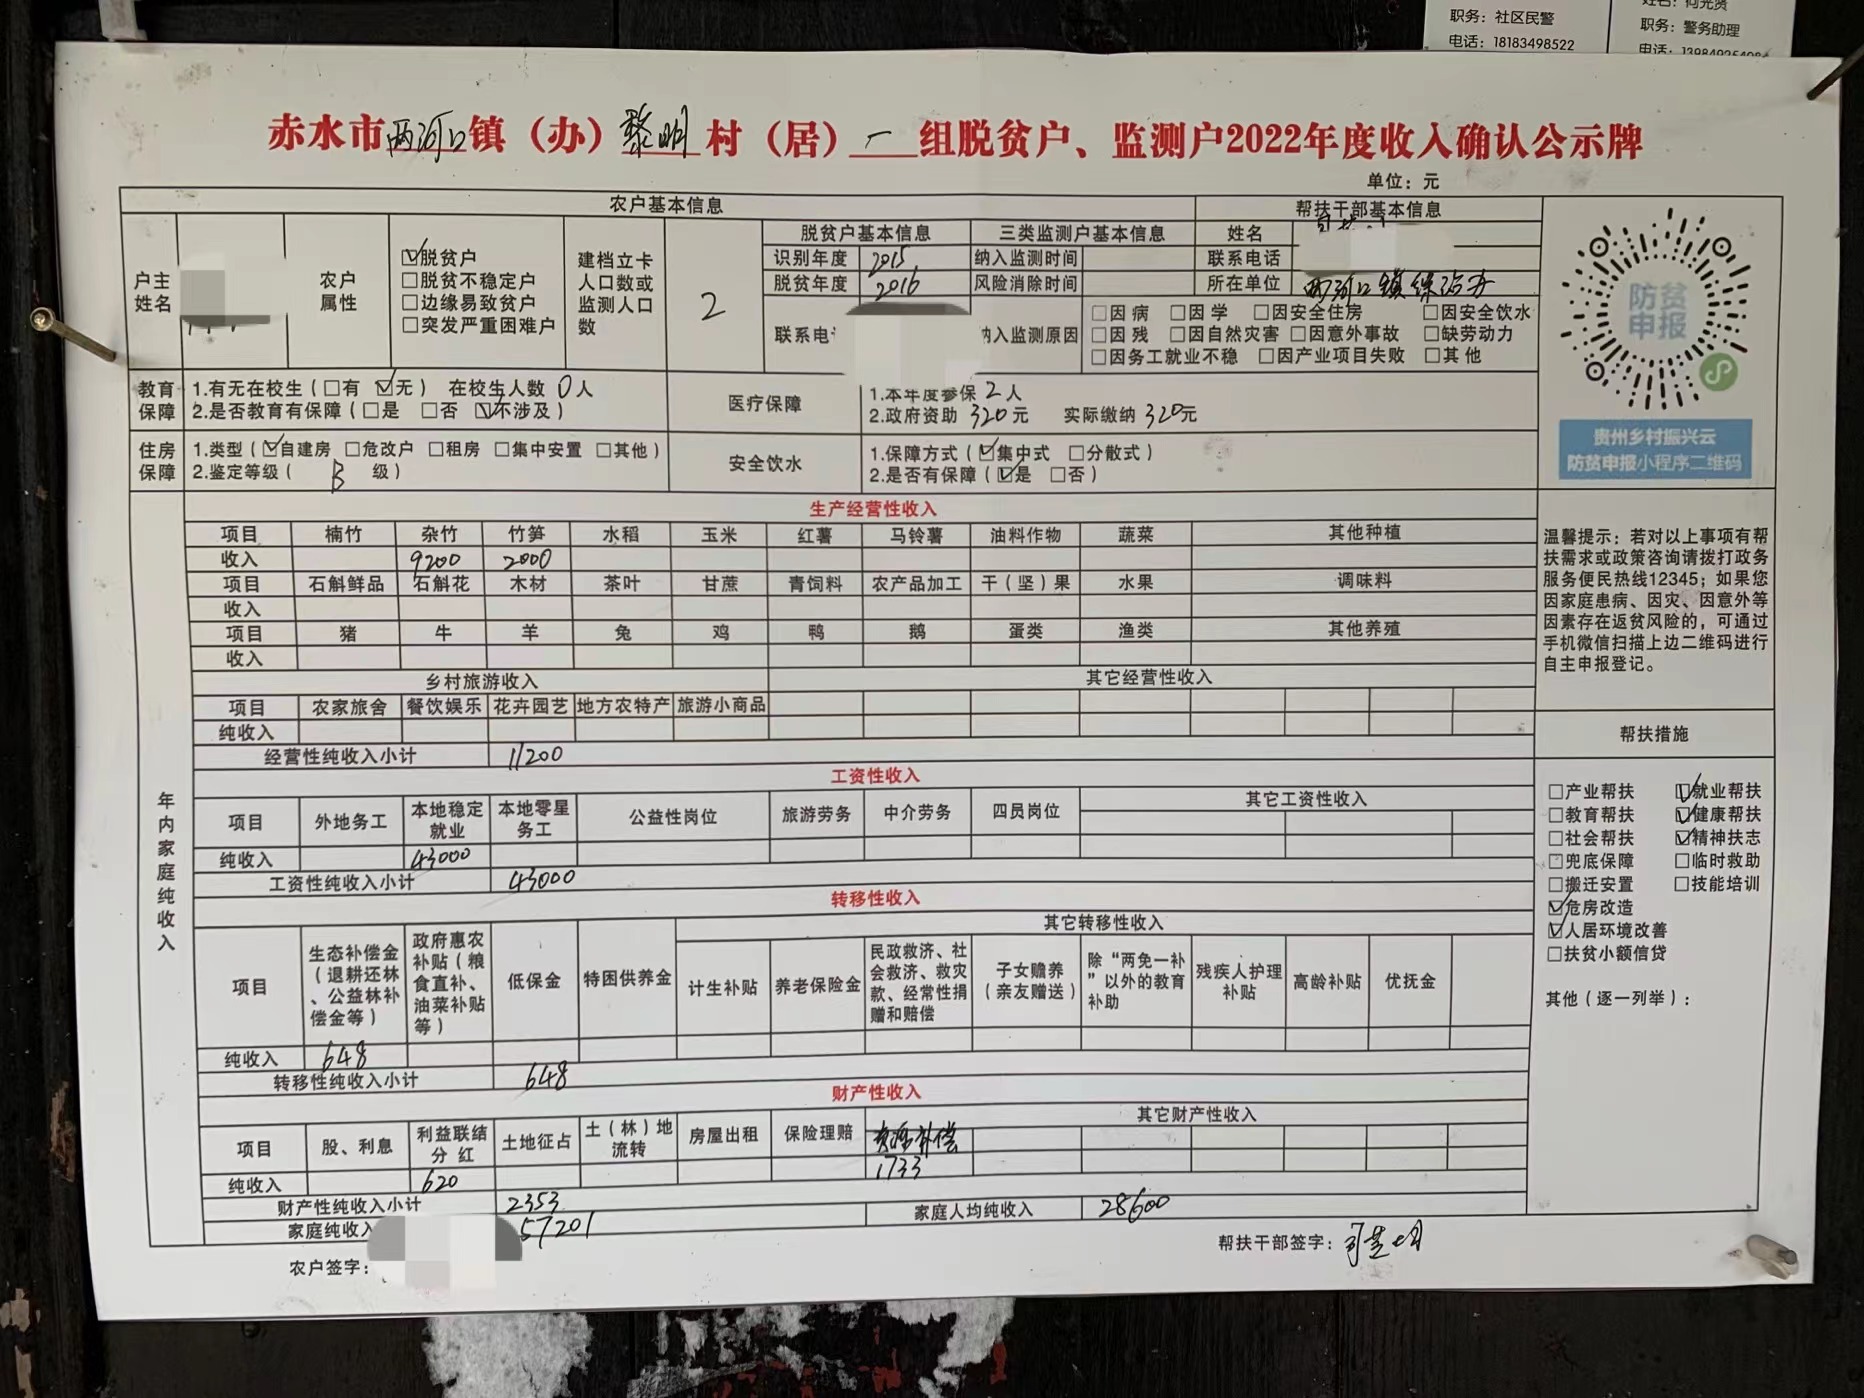 职务：社区民警
电话：18183498522
职务：警务助理
赤水市两河口镇（办）黎明村（居）一组脱贫户、监测户2022年度收入确认公示牌
单位：元
农户基本信息 帮扶干部基本信息
户主姓名 农户属性
☑脱贫户
□脱贫不稳定户
□边缘易致贫户
□突发严重困难户
建档立卡人口数或监测人口数 2
脱贫户基本信息 三类监测户基本信息 姓名
识别年度 2015 纳入监测时间 联系电话
脱贫年度 2016 风险消除时间 所在单位 两河口镇综治办
联系电 纳入监测原因
□因病 □因学 □因安全住房 □因安全饮水
□因残 □因自然灾害 □因意外事故 □缺劳动力
□因务工就业不稳 □因产业项目失败 □其他
防贫申报
贵州乡村振兴云
防贫申报小程序二维码
教育保障
1.有无在校生（□有 ☑无） 在校生人数 0人
2.是否教育有保障（□是 □否 ☑不涉及）
医疗保障
1.本年度参保 2人
2.政府资助 320元 实际缴纳 320元
住房保障
1.类型（☑自建房 □危改户 □租房 □集中安置 □其他）
2.鉴定等级（ B 级）
安全饮水
1.保障方式（☑集中式 □分散式）
2.是否有保障（☑是 □否）
年内家庭纯收入
生产经营性收入
项目 楠竹 杂竹 竹笋 水稻 玉米 红薯 马铃薯 油料作物 蔬菜 其他种植
收入 9200 2000
项目 石斛鲜品 石斛花 木材 茶叶 甘蔗 青饲料 农产品加工 干（坚）果 水果 调味料
收入
项目 猪 牛 羊 兔 鸡 鸭 鹅 蛋类 渔类 其他养殖
收入
乡村旅游收入 其它经营性收入
项目 农家旅舍 餐饮娱乐 花卉园艺 地方农特产 旅游小商品
纯收入
经营性纯收入小计 11200
工资性收入
项目 外地务工 本地稳定就业 本地零星务工 公益性岗位 旅游劳务 中介劳务 四员岗位 其它工资性收入
纯收入 43000
工资性纯收入小计 43000
转移性收入
其它转移性收入
项目 生态补偿金（退耕还林、公益林补偿金等） 政府惠农补贴（粮食直补、油菜补贴等） 低保金 特困供养金 计生补贴 养老保险金 民政救济、社会救济、救灾款、经常性捐赠和赔偿 子女赡养（亲友赠送） 除“两免一补”以外的教育补助 残疾人护理补贴 高龄补贴 优抚金
纯收入 648
转移性纯收入小计 648
财产性收入
其它财产性收入
项目 股、利息 利益联结分红 土地征占 土（林）地流转 房屋出租 保险理赔 资源补偿
纯收入 620 1733
财产性纯收入小计 2353
家庭纯收入 57201 家庭人均纯收入 28600
农户签字： 帮扶干部签字：
温馨提示：若对以上事项有帮
扶需求或政策咨询请拨打政务
服务便民热线12345；如果您
因家庭患病、因灾、因意外等
因素存在返贫风险的，可通过
手机微信扫描上边二维码进行
自主申报登记。
帮扶措施
□产业帮扶 ☑就业帮扶
□教育帮扶 ☑健康帮扶
□社会帮扶 ☑精神扶志
□兜底保障 □临时救助
□搬迁安置 □技能培训
☑危房改造
☑人居环境改善
□扶贫小额信贷
其他（逐一列举）：